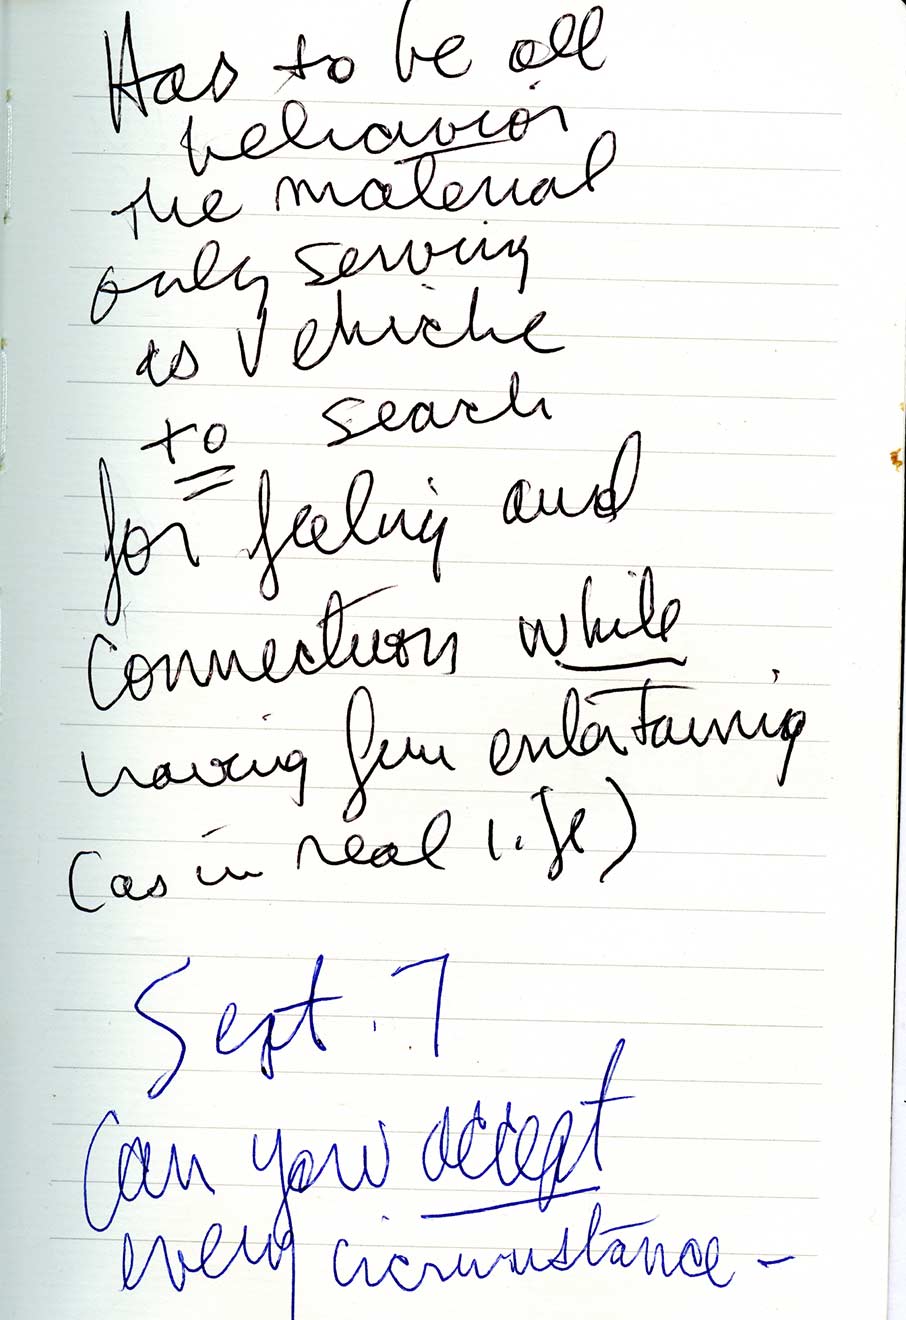 Has to be all
behavior
the material
only serving
as vehicle
to search
for feeling and
connections while
having fun entertaining
(as in real life)
Sept. 7
Can you accept
every circumstance –